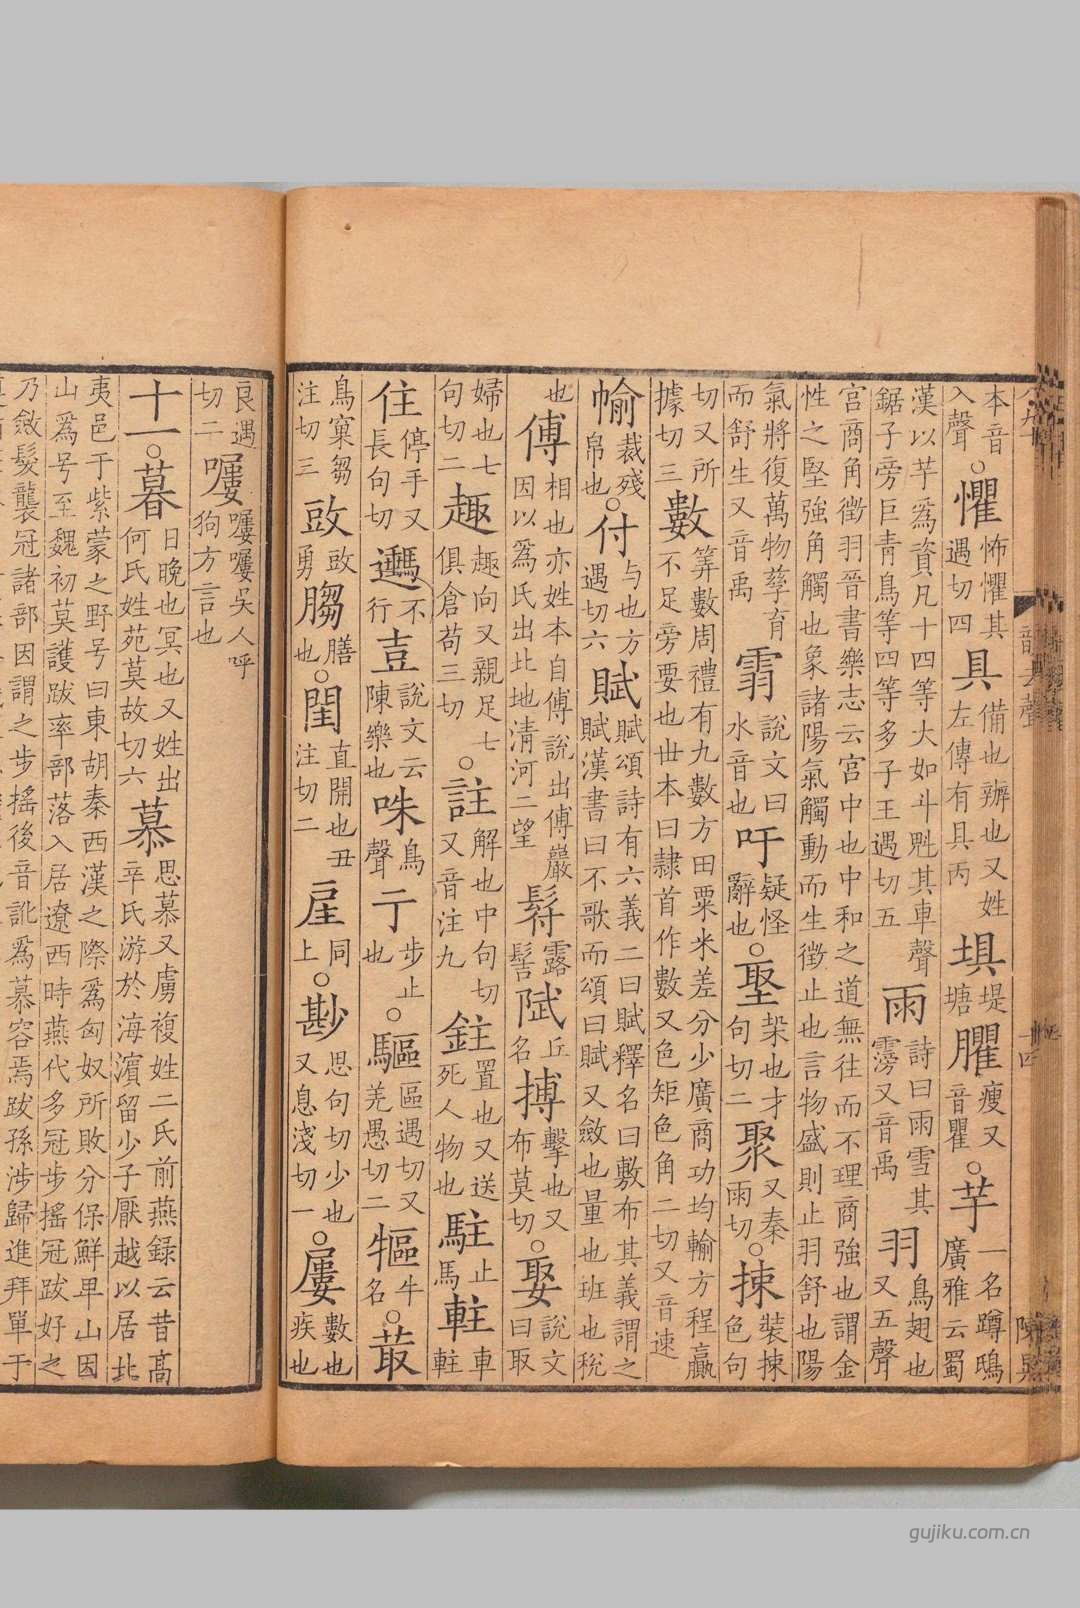 本音入聲。懼怖懼其遇切四具備也辦也又姓左傳有具丙埧堤塘臞瘦又音瞿。芋一名蹲鴟廣雅云蜀
漢以芋爲資凡十四等大如斗魁其車聲鋸子旁巨青鳥等四等多子王遇切五雨詩曰雨雪其雱又音禹羽鳥翅也又五聲
宮商角徵羽晉書樂志云宮中也中和之道無往而不理商強也謂金性之堅強角觸也象諸陽氣觸動而生徵止也言物盛則止羽舒也陽
氣將復萬物孳育而舒生又音禹䨞說文曰水音也吁疑怪辭也。埾垜也才句切二聚又秦雨切。捒裝捒色句
切又所據切三數筭數周禮有九數方田粟米差分少廣商功均輸方程贏不足旁要也世本曰隸首作數又色矩色角二切又音速
㡏裁殘帛也。付与也方遇切六賦賦頌詩有六義二曰賦釋名曰敷布其義謂之賦漢書曰不歌而頌曰賦又斂也量也班也稅
也傅相也亦姓本自傅說出傅巖因以爲氏出北地清河二望露髻丘名搏擊也又布莫切。娶說文曰取
婦也七句切二趣趣向又親足七俱倉苟三切。註解也中句切又音注九鉒置也又送死人物也駐止馬軴車軴
住停手又長句切不行壴說文云陳樂也咮鳥聲亍步止也。驅區遇切又羌愚切二䡱牛名。菆
鳥窠芻注切三勇膳也。閏直開也丑注切二同上。尠思句切少也又息淺切一。屢數也疾也
良遇切二㘔㘔㘔吳人呼狗方言也
十一。暮日晚也冥也又姓出何氏姓苑莫故切六慕思慕又虜複姓二氏前燕録云昔高辛氏游於海濵留少子厭越以居北
夷邑于紫蒙之野号曰東胡秦西漢之際爲匈奴所敗分保鮮卑山因山爲号至魏初莫護跋率部落入居遼西時燕代多冠步搖冠跋好之
乃斂髮襲冠諸部因謂之步搖後音訛爲慕容焉跋孫涉歸進拜單于
gujiku.com.cn